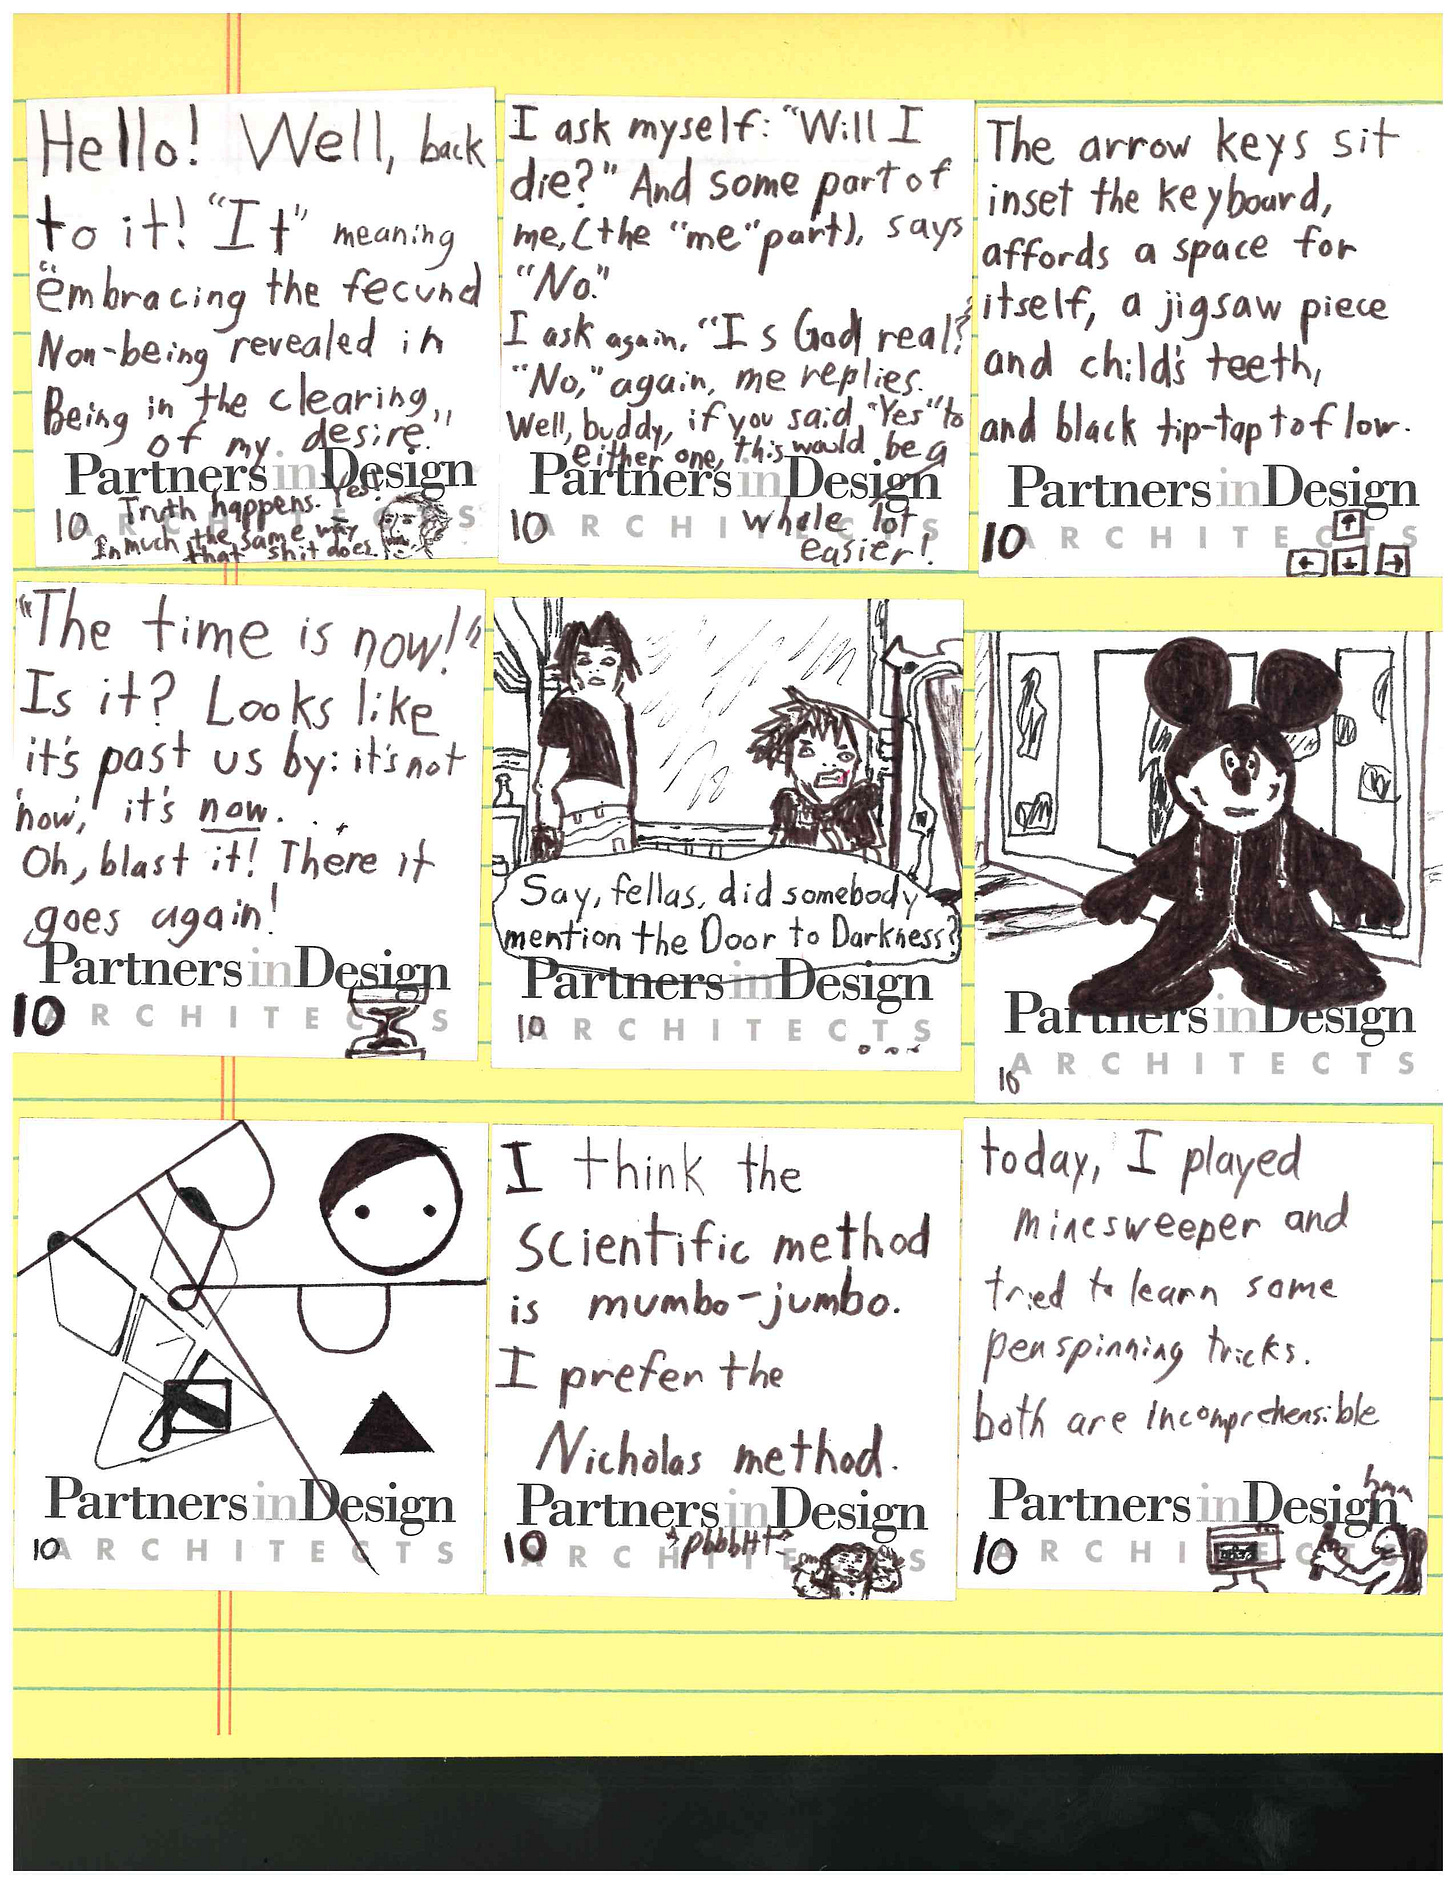 Hello! Well, back
to it! "It" meaning
"embracing the fecund
Non-being revealed in
Being in the clearing,,
of my desire."
Partners in Design
ARCHITECTS
Truth happens. Yes!
In much the same way
that shit does.
10
I ask myself: "Will I
die?" And some part of
me, (the "me" part), says
"No."
I ask again, "Is God real?"
"No," again, me replies.
Well, buddy, if you said "Yes" to
either one, this would be a
whole lot
easier!
Partners in Design
ARCHITECTS
10
The arrow keys sit
inset the keyboard,
affords a space for
itself, a jigsaw piece
and child's teeth,
and black tip-tap to flow.
Partners in Design
ARCHITECTS
10
"The time is now!"
Is it? Looks like
it's past us by: it's not
'now,' it's now. . .
Oh, blast it! There it
goes again!
Partners in Design
ARCHITECTS
10
Say, fellas, did somebody
mention the Door to Darkness?
Partners in Design
ARCHITECTS
10
Partners in Design
ARCHITECTS
10
Partners in Design
ARCHITECTS
10
I think the
Scientific method
is mumbo-jumbo.
I prefer the
Nicholas method.
Partners in Design
ARCHITECTS
*pbbbHt*
10
today, I played
minesweeper and
tried to learn some
pen spinning tricks.
both are incomprehensible
Partners in Design
ARCHITECTS
hmm
10